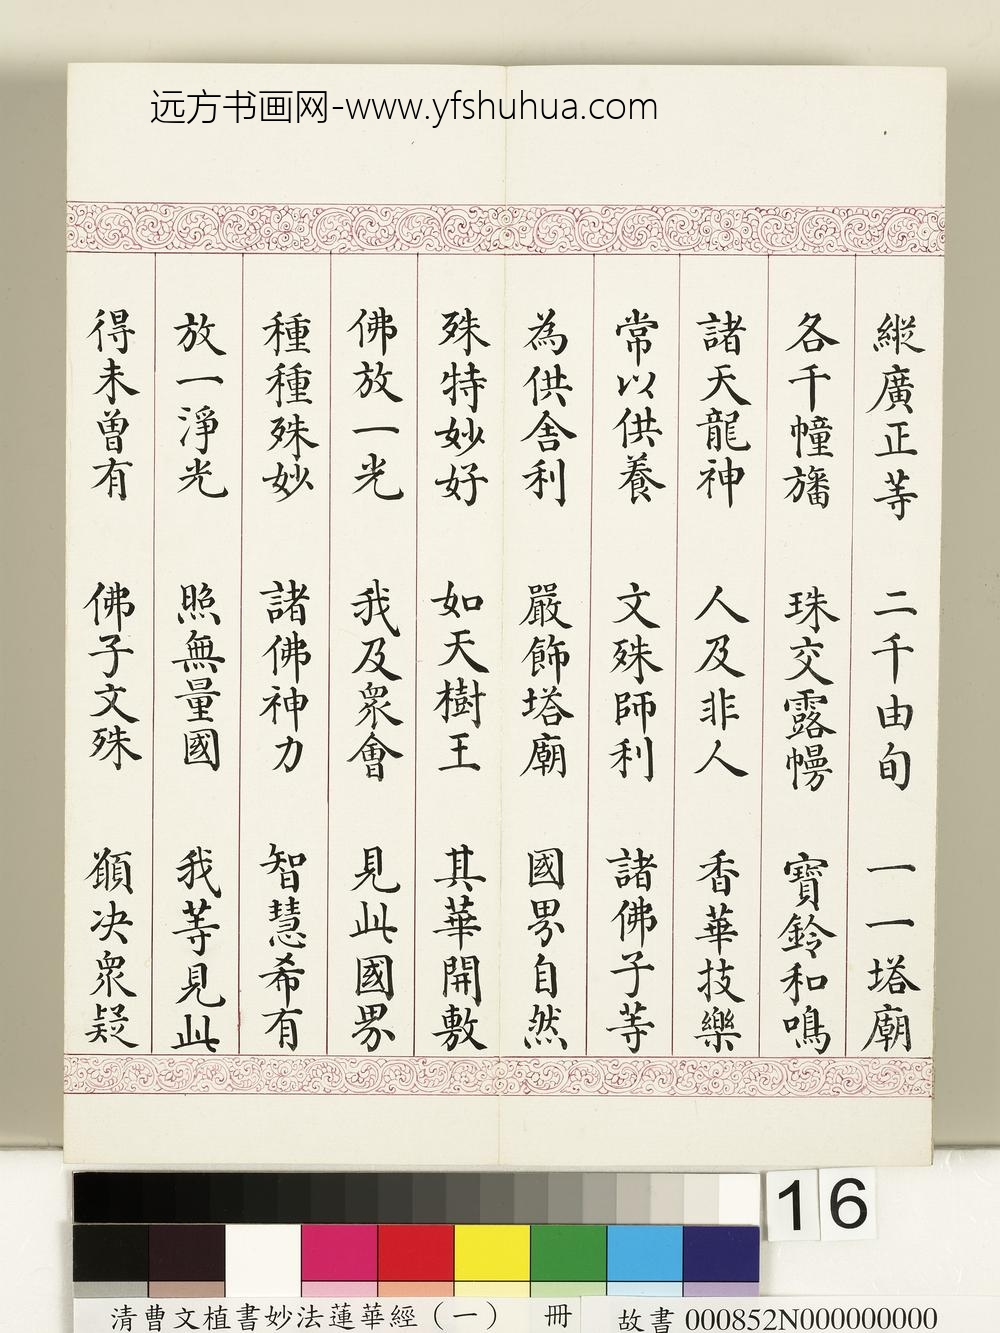 远方书画网-www.yfshuhua.com
縱廣正等 二千由旬 一一塔廟
各千幢旛 珠交露幔 寶鈴和鳴
諸天龍神 人及非人 香華技樂
常以供養 文殊師利 諸佛子等
為供舍利 嚴飾塔廟 國界自然
殊特妙好 如天樹王 其華開敷
佛放一光 我及眾會 見此國界
種種殊妙 諸佛神力 智慧希有
放一淨光 照無量國 我等見此
得未曾有 佛子文殊 願决眾疑
16
清曹文植書妙法蓮華經（一） 冊 故書 000852N000000000